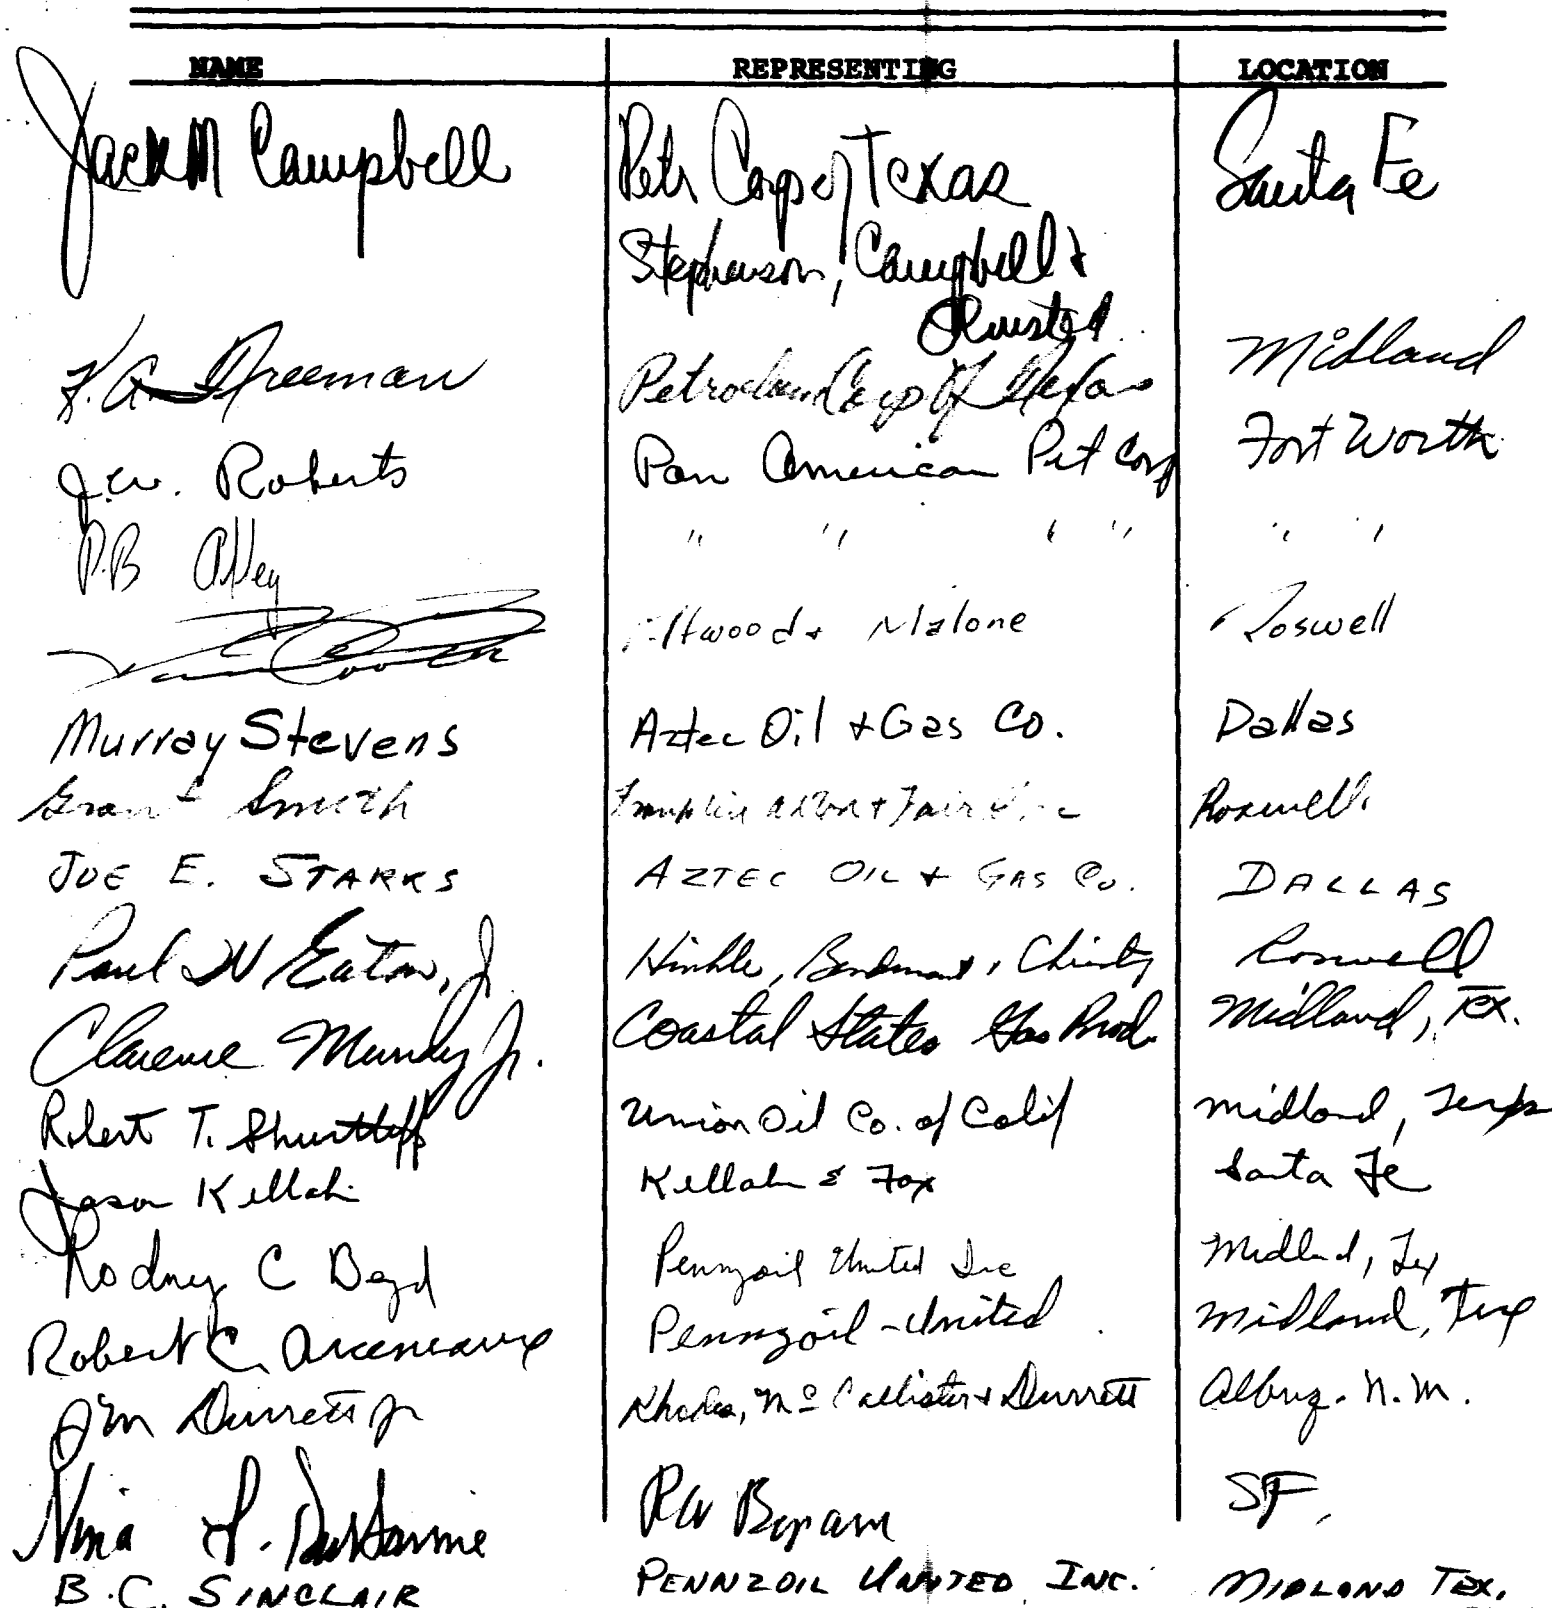 NAME REPRESENTING LOCATION
Jack M Campbell Petr Corp of Texas Santa Fe
Stephenson, Campbell &
Olmsted
K.A. Freeman Petroleum Corp Of Texas Midland
J.W. Roberts Pan American Pet Corp Fort Worth
P.B " " " " " "
& Malone Roswell
Murray Stevens Aztec Oil & Gas Co. Dallas
Grant Smith Franklin & Fair Roswell
JOE E. STARKS AZTEC OIL & GAS CO. DALLAS
Paul W Eaton, Jr Hinkle, Bondurant, Christy Roswell
Clarence Mundy Jr. Coastal States Gas Prod. Midland, Tex.
Robert T. Shurtleff Union Oil Co. of Calif Midland, Texas
Jason Kellahin Kellahin & Fox Santa Fe
Rodney C Boyd Pennzoil United Inc Midland, Tex
Robert C. Arceneaux Pennzoil-United Midland, Tex
Jim Durrett Jr Rhodes, McCallister & Durrett Albuq. N.M.
Nina R W Byram SF,
B.C. SINCLAIR PENNZOIL UNITED INC. MIDLAND TEX.